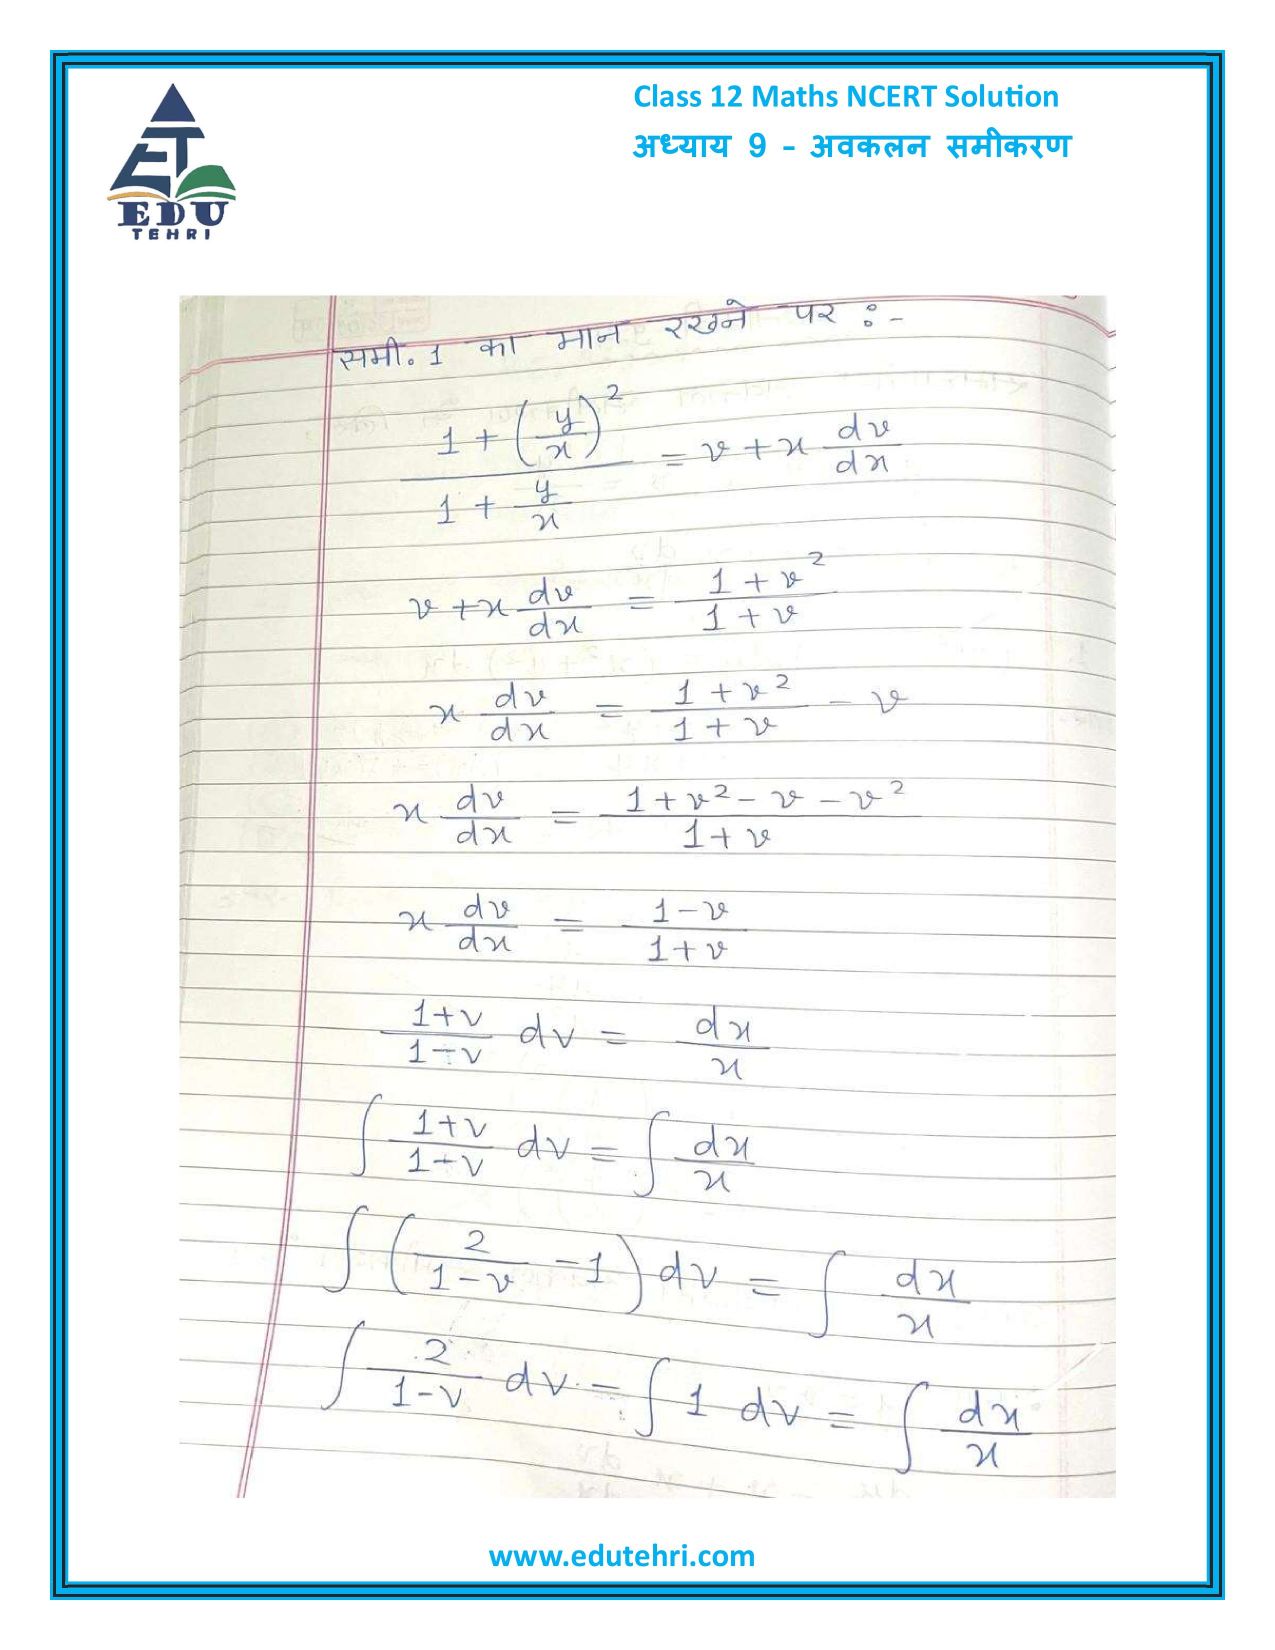 Class 12 Maths NCERT Solution
अध्याय 9 - अवकलन समीकरण
EDU
TEHRI
समी. 1 का मान रखने पर :-
\frac{1 + \left(\frac{y}{x}\right)^2}{1 + \frac{y}{x}} = v + x \frac{dv}{dx}
v + x \frac{dv}{dx} = \frac{1 + v^2}{1 + v}
x \frac{dv}{dx} = \frac{1 + v^2}{1 + v} - v
x \frac{dv}{dx} = \frac{1 + v^2 - v - v^2}{1 + v}
x \frac{dv}{dx} = \frac{1 - v}{1 + v}
\frac{1+v}{1-v} dv = \frac{dx}{x}
\int \frac{1+v}{1-v} dv = \int \frac{dx}{x}
\int \left(\frac{2}{1-v} - 1\right) dv = \int \frac{dx}{x}
\int \frac{2}{1-v} dv = \int 1 dv = \int \frac{dx}{x}
www.edutehri.com